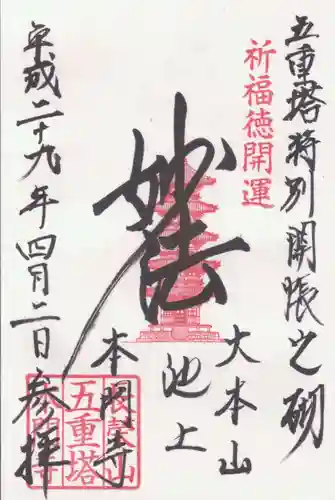 五重塔特別開帳之砌
祈福徳開運
妙法
大本山
池上
本門寺
五重塔
平成二十九年四月二日参拝